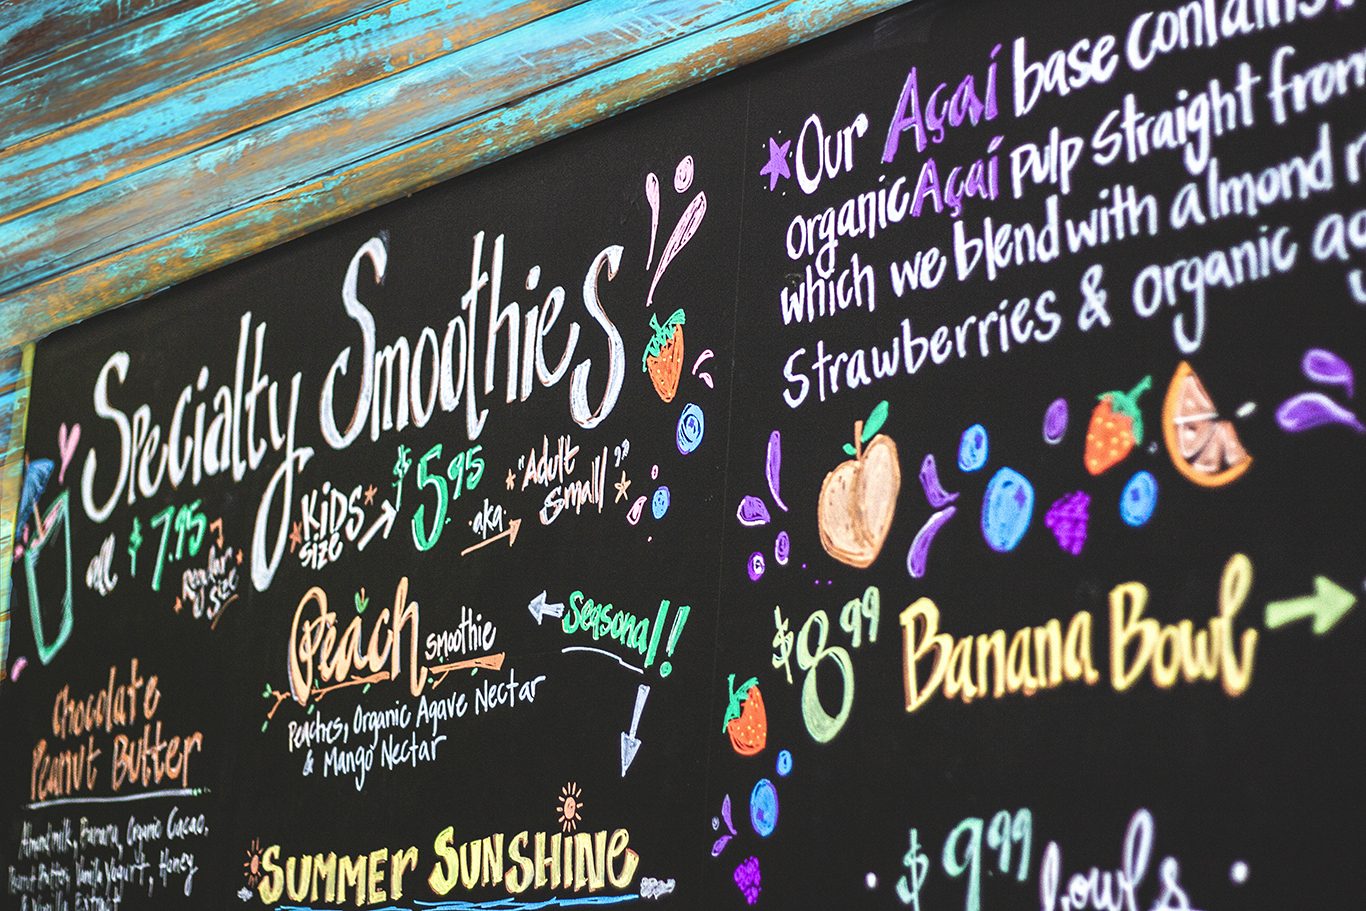 Specialty Smoothies
all $7.95 Regular Size
Kids Size
$5.95
aka
"Adult Small"
Chocolate
Peanut Butter
Almondmilk, Banana, Organic Cacao,
Peanut Butter, Vanilla Yogurt, Honey
& Vanilla Extract
Peach smoothie
Seasonal!!
Peaches, Organic Agave Nectar
& Mango Nectar
Summer Sunshine
Our Açaí base contains
organic Açaí pulp straight from
which we blend with almond
Strawberries & organic
$8.99 Banana Bowl
$9.99 bowls